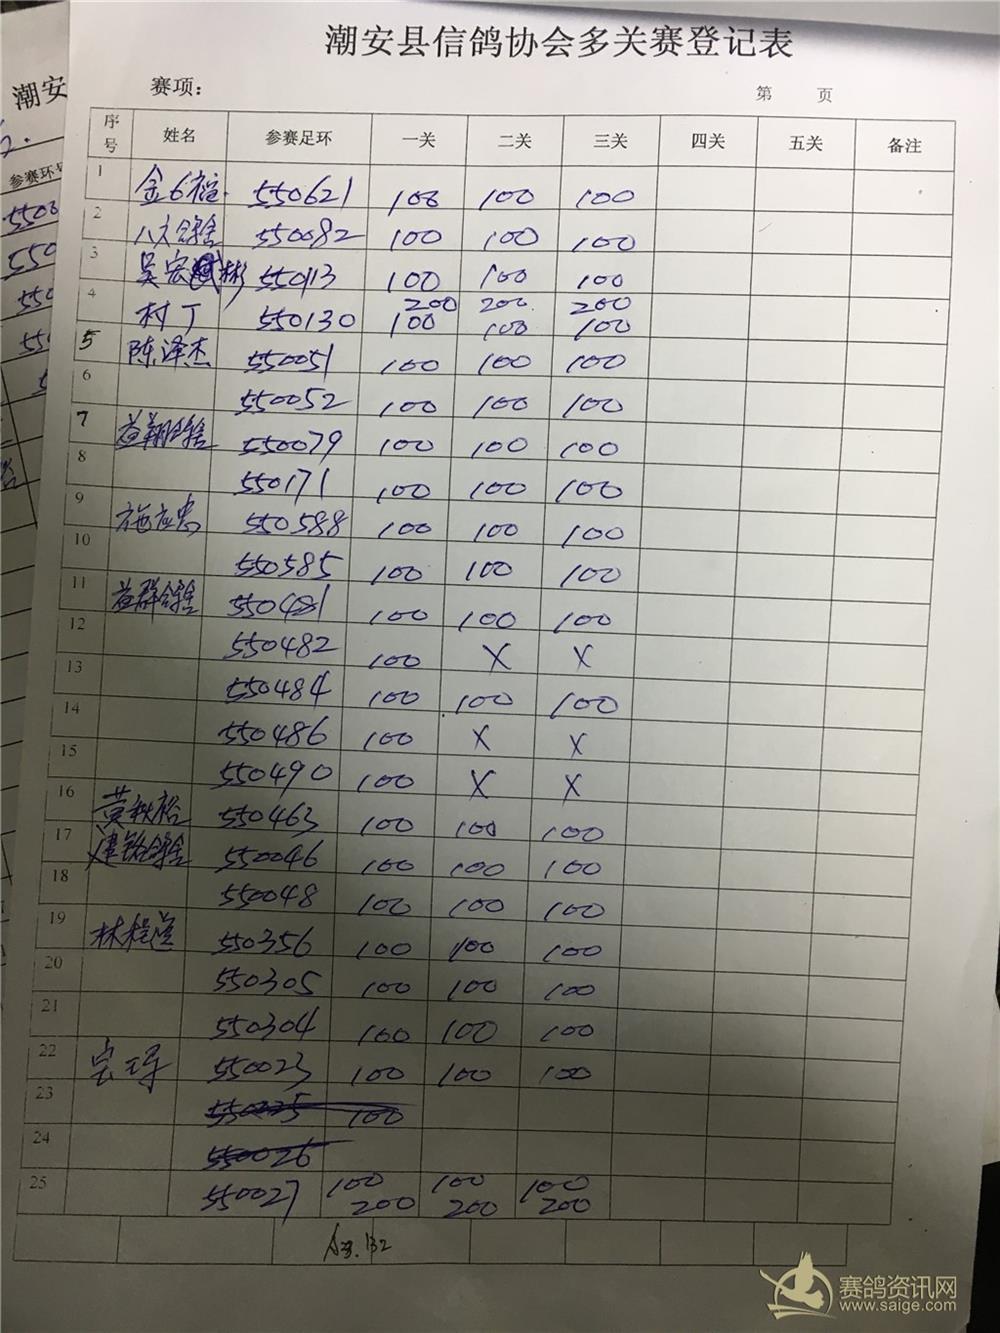 潮安县信鸽协会多关赛登记表
赛项： 第 页
序号 姓名 参赛足环 一关 二关 三关 四关 五关 备注
1 金6福 550621 100 100 100
2 八大鸽舍 550082 100 100 100
3 吴宏彬 550113 100 100 100
200 200 200
4 村丁 550130 100 100 100
5 陈泽杰 550051 100 100 100
6 550052 100 100 100
7 益翔鸽舍 550079 100 100 100
8 550171 100 100 100
9 施应忠 550588 100 100 100
10 550585 100 100 100
11 益群鸽舍 550481 100 100 100
12 550482 100 X X
13 550484 100 100 100
14 550486 100 X X
15 550490 100 X X
16 黄秋裕 550463 100 100 100
17 建铭鸽舍 550046 100 100 100
18 550048 100 100 100
19 林程道 550356 100 100 100
20 550305 100 100 100
21 550304 100 100 100
22 550023 100 100 100
23 100
24 550026
25 550027 100 100 100
200 200 200
潮安
参赛环号
赛鸽资讯网
www.saige.com